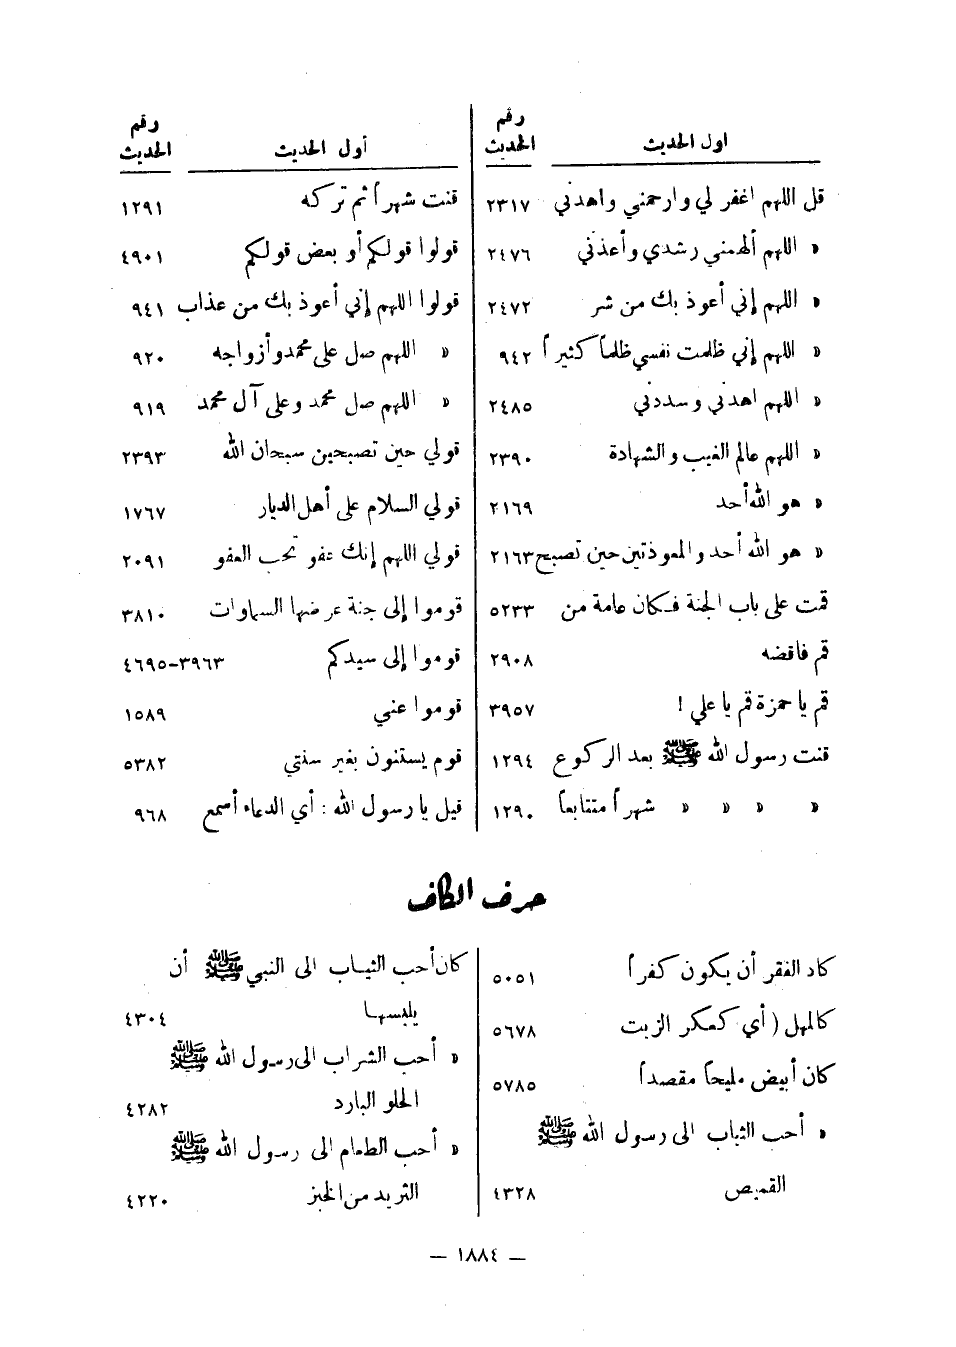 اول الحديث رقم الحديث
قل اللهم اغفر لي وارحمني واهدني ٢٣١٧
« اللهم ألهمني رشدي وأعذني ٢٤٧٦
« اللهم إني أعوذ بك من شر ٢٤٧٢
« اللهم إني ظلمت نفسي ظلماً كثيراً ٩٤٢
« اللهم اهدني وسددني ٢٤٨٥
« اللهم عالم الغيب والشهادة ٢٣٩٠
« هو الله أحد ٢١٦٩
« هو الله أحد والمعوذتين حين تصبح ٢١٦٣
قمت على باب الجنة فكان عامة من ٥٢٣٣
قم فاقضه ٢٩٠٨
قم يا حمزة قم يا علي ! ٣٩٥٧
قنت رسول الله ﷺ بعد الركوع ١٢٩٤
« « « « شهراً متتابعاً ١٢٩٠
أول الحديث رقم الحديث
قنت شهراً ثم تركه ١٢٩١
قولوا قولكم أو بعض قولكم ٤٩٠١
قولوا اللهم إني أعوذ بك من عذاب ٩٤١
« اللهم صل على محمد وأزواجه ٩٢٠
« اللهم صل محمد وعلى آل محمد ٩١٩
قولي حين تصبحين سبحان الله ٢٣٩٣
قولي السلام على أهل الديار ١٧٦٧
قولي اللهم إنك عفو تحب العفو ٢٠٩١
قوموا إلى جنة عرضها السماوات ٣٨١٠
قوموا إلى سيدكم ٣٩٦٣-٤٦٩٥
قوموا عني ١٥٨٩
قوم يستنون بغير سنتي ٥٣٨٢
قيل يا رسول الله : أي الدعاء أسمع ٩٦٨
حرف الكاف
كاد الفقر أن يكون كفراً ٥٠٥١
كالمهل ( أي كعكر الزيت ٥٦٧٨
كان أبيض مليحاً مقصداً ٥٧٨٥
« أحب الثياب الى رسول الله ﷺ
القميص ٤٣٢٨
كان أحب الثياب الى النبي ﷺ أن
يلبسها ٤٣٠٤
« أحب الشراب الى رسول الله ﷺ
الحلو البارد ٤٢٨٢
« أحب الطعام الى رسول الله ﷺ
الثريد من الخبز ٤٢٢٠
— ١٨٨٤ —